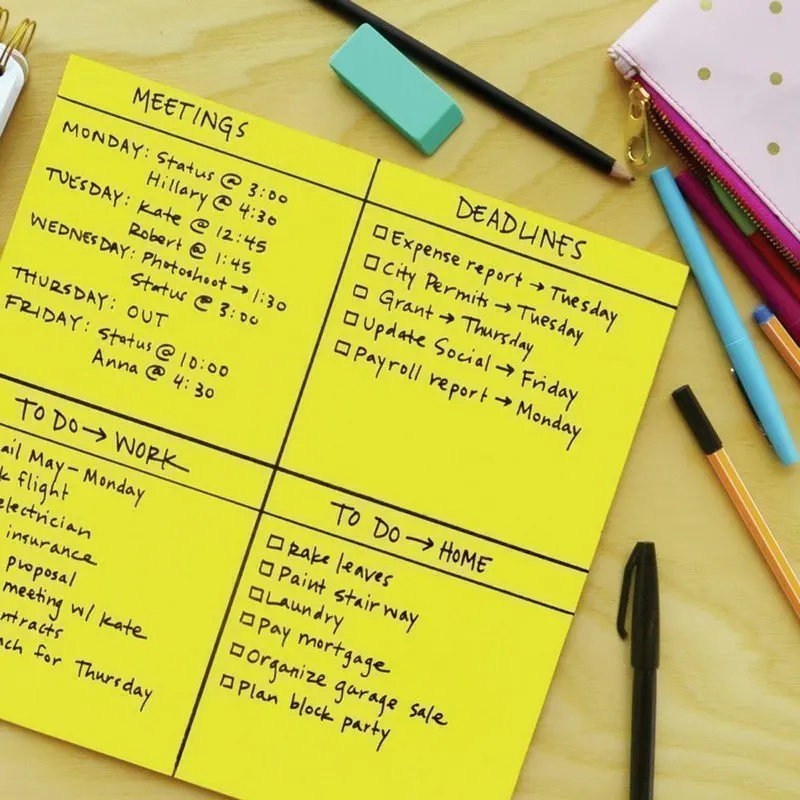 MEETINGS
MONDAY: Status @ 3:00
Hillary @ 4:30
TUESDAY: Kate @ 12:45
Robert @ 1:45
WEDNESDAY: Photoshoot → 1:30
Status @ 3:00
THURSDAY: OUT
FRIDAY: Status @ 10:00
Anna @ 4:30
DEADLINES
☐ Expense report → Tuesday
☐ City Permits → Tuesday
☐ Grant → Thursday
☐ Update Social → Friday
☐ Payroll report → Monday
TO DO → WORK
May - Monday
flight
electrician
insurance
proposal
meeting w/ Kate
for Thursday
TO DO → HOME
☐ Rake leaves
☐ Paint stairway
☐ Laundry
☐ Pay mortgage
☐ Organize garage sale
☐ Plan block party